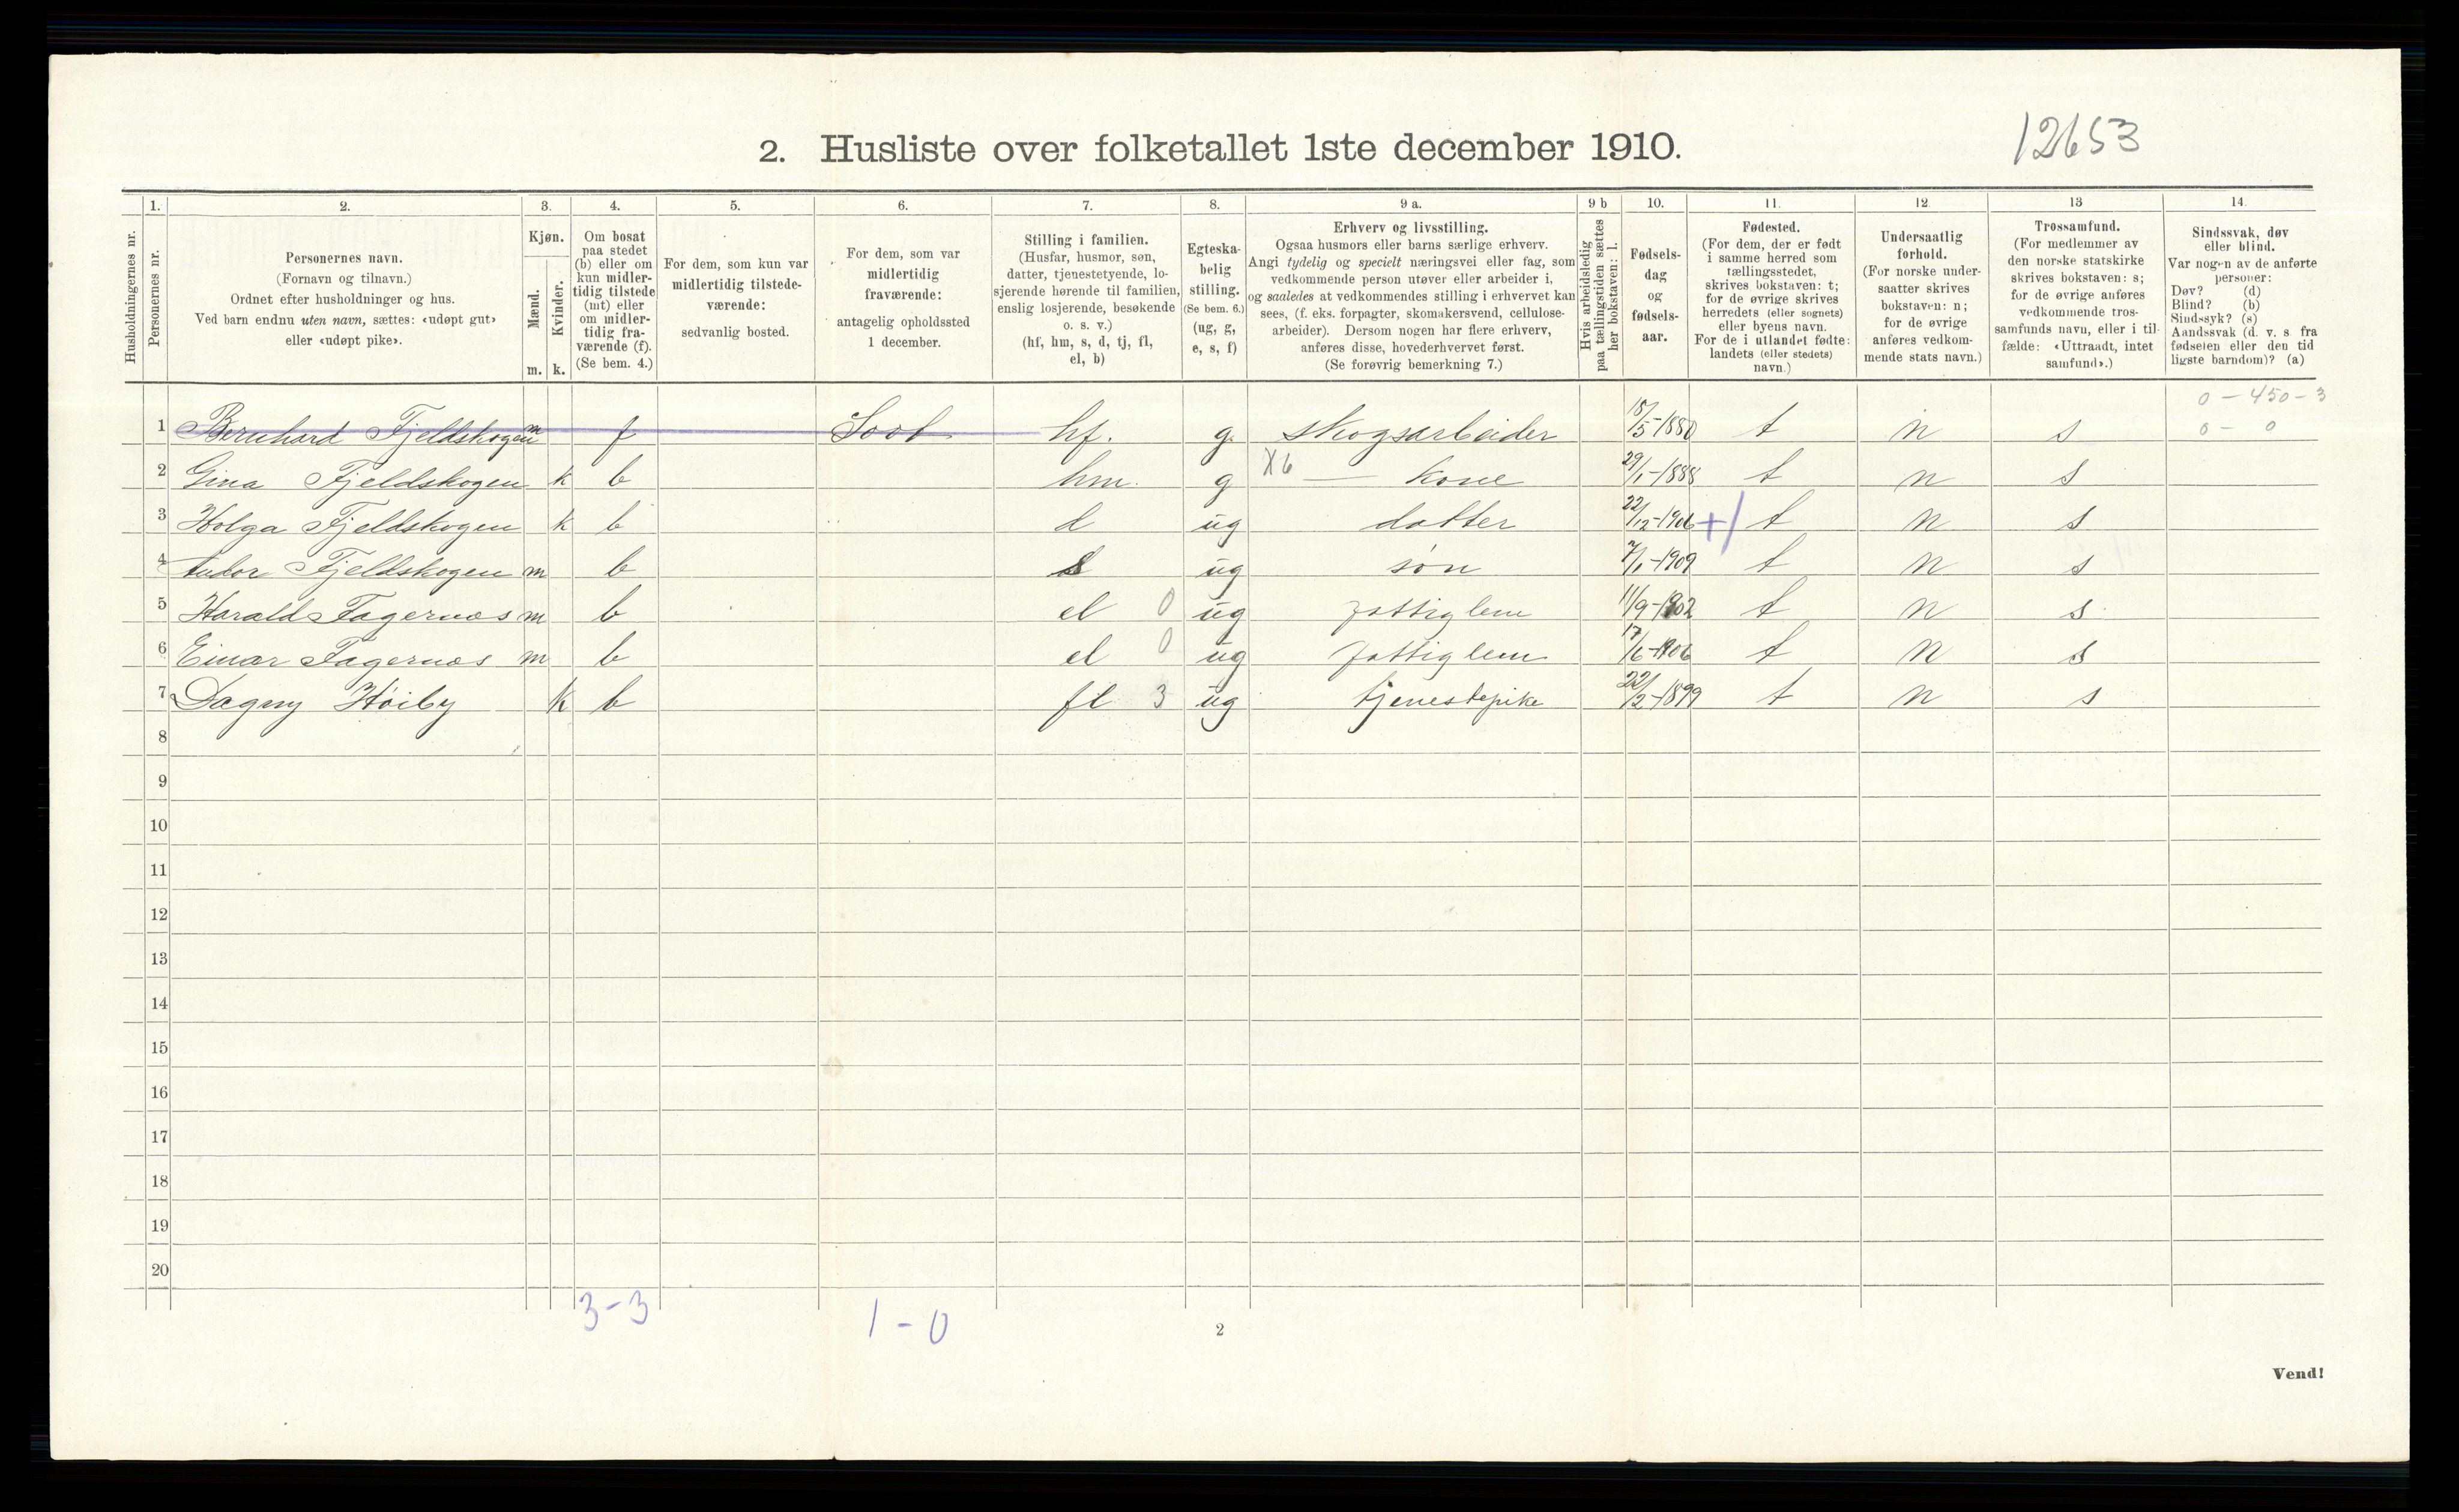 12653
2. Husliste over folketallet 1ste december 1910.
Husholdningernes nr.
1. Personernes nr.
2. Personernes navn.
(Fornavn og tilnavn.)
Ordnet efter husholdninger og hus.
Ved barn endnu uten navn, sættes: «udøpt gut»
eller «udøpt pike».
3. Kjøn.
Mænd. m.
Kvinder. k.
4. Om bosat
paa stedet
(b) eller om
kun midler-
tidig tilstede
(mt) eller
om midler-
tidig fra-
værende (f).
(Se bem. 4.)
5. For dem, som kun var
midlertidig tilstede-
værende:
sedvanlig bosted.
6. For dem, som var
midlertidig
fraværende:
antagelig opholdssted
1 december.
7. Stilling i familien.
(Husfar, husmor, søn,
datter, tjenestetyende, lo-
sjerende hørende til familien,
enslig losjerende, besøkende
o. s. v.)
(hf, hm, s, d, tj, fl,
el, b)
8. Egteska-
belig
stilling.
(Se bem. 6.)
(ug, g,
e, s, f)
9 a. Erhverv og livsstilling.
Ogsaa husmors eller barns særlige erhverv.
Angi tydelig og specielt næringsvei eller fag, som
vedkommende person utøver eller arbeider i,
og saaledes at vedkommendes stilling i erhvervet kan
sees, (f. eks. forpagter, skomakersvend, cellulose-
arbeider). Dersom nogen har flere erhverv,
anføres disse, hovederhvervet først.
(Se forøvrig bemerkning 7.)
9 b Hvis arbeidsledig
paa tællingstiden sættes
her bokstaven: l.
10. Fødsels-
dag
og
fødsels-
aar.
11. Fødested.
(For dem, der er født
i samme herred som
tællingsstedet,
skrives bokstaven: t;
for de øvrige skrives
herredets (eller sognets)
eller byens navn.
For de i utlandet fødte:
landets (eller stedets)
navn.)
12. Undersaatlig
forhold.
(For norske under-
saatter skrives
bokstaven: n;
for de øvrige
anføres vedkom-
mende stats navn.)
13 Trossamfund.
(For medlemmer av
den norske statskirke
skrives bokstaven: s;
for de øvrige anføres
vedkommende tros-
samfunds navn, eller i til-
fælde: «Uttraadt, intet
samfund».)
14. Sindssvak, døv
eller blind.
Var nogen av de anførte
personer:
Døv? (d)
Blind? (b)
Sindssyk? (s)
Aandssvak (d. v. s. fra
fødselen eller den tid
ligste barndom)? (a)
0 - 450 - 3
1 Bernhard Fjeldskogen m f Soot hf. g. skogsarbeider 15/5-1880 t n s 0 - 0
2 Gina Fjeldskogen k b hm. g X6 — kone 29/1-1888 t n s
3 Holga Fjeldskogen k b d ug datter 22/12-1906 +/ t n s
4 Fjeldskogen m b s ug søn 7/1-1909 t n s
5 Harald Fagernæs m b el 0 ug fattiglem 11/9-1902 t n s
6 Einar Fagernæs m b el 0 ug fattiglem 17/6-1906 t n s
7 Dagny Høiby k b fl 3 ug tjenestepike 22/2-1899 t n s
8
9
10
11
12
13
14
15
16
17
18
19
20
3-3
1-0
2
Vend!